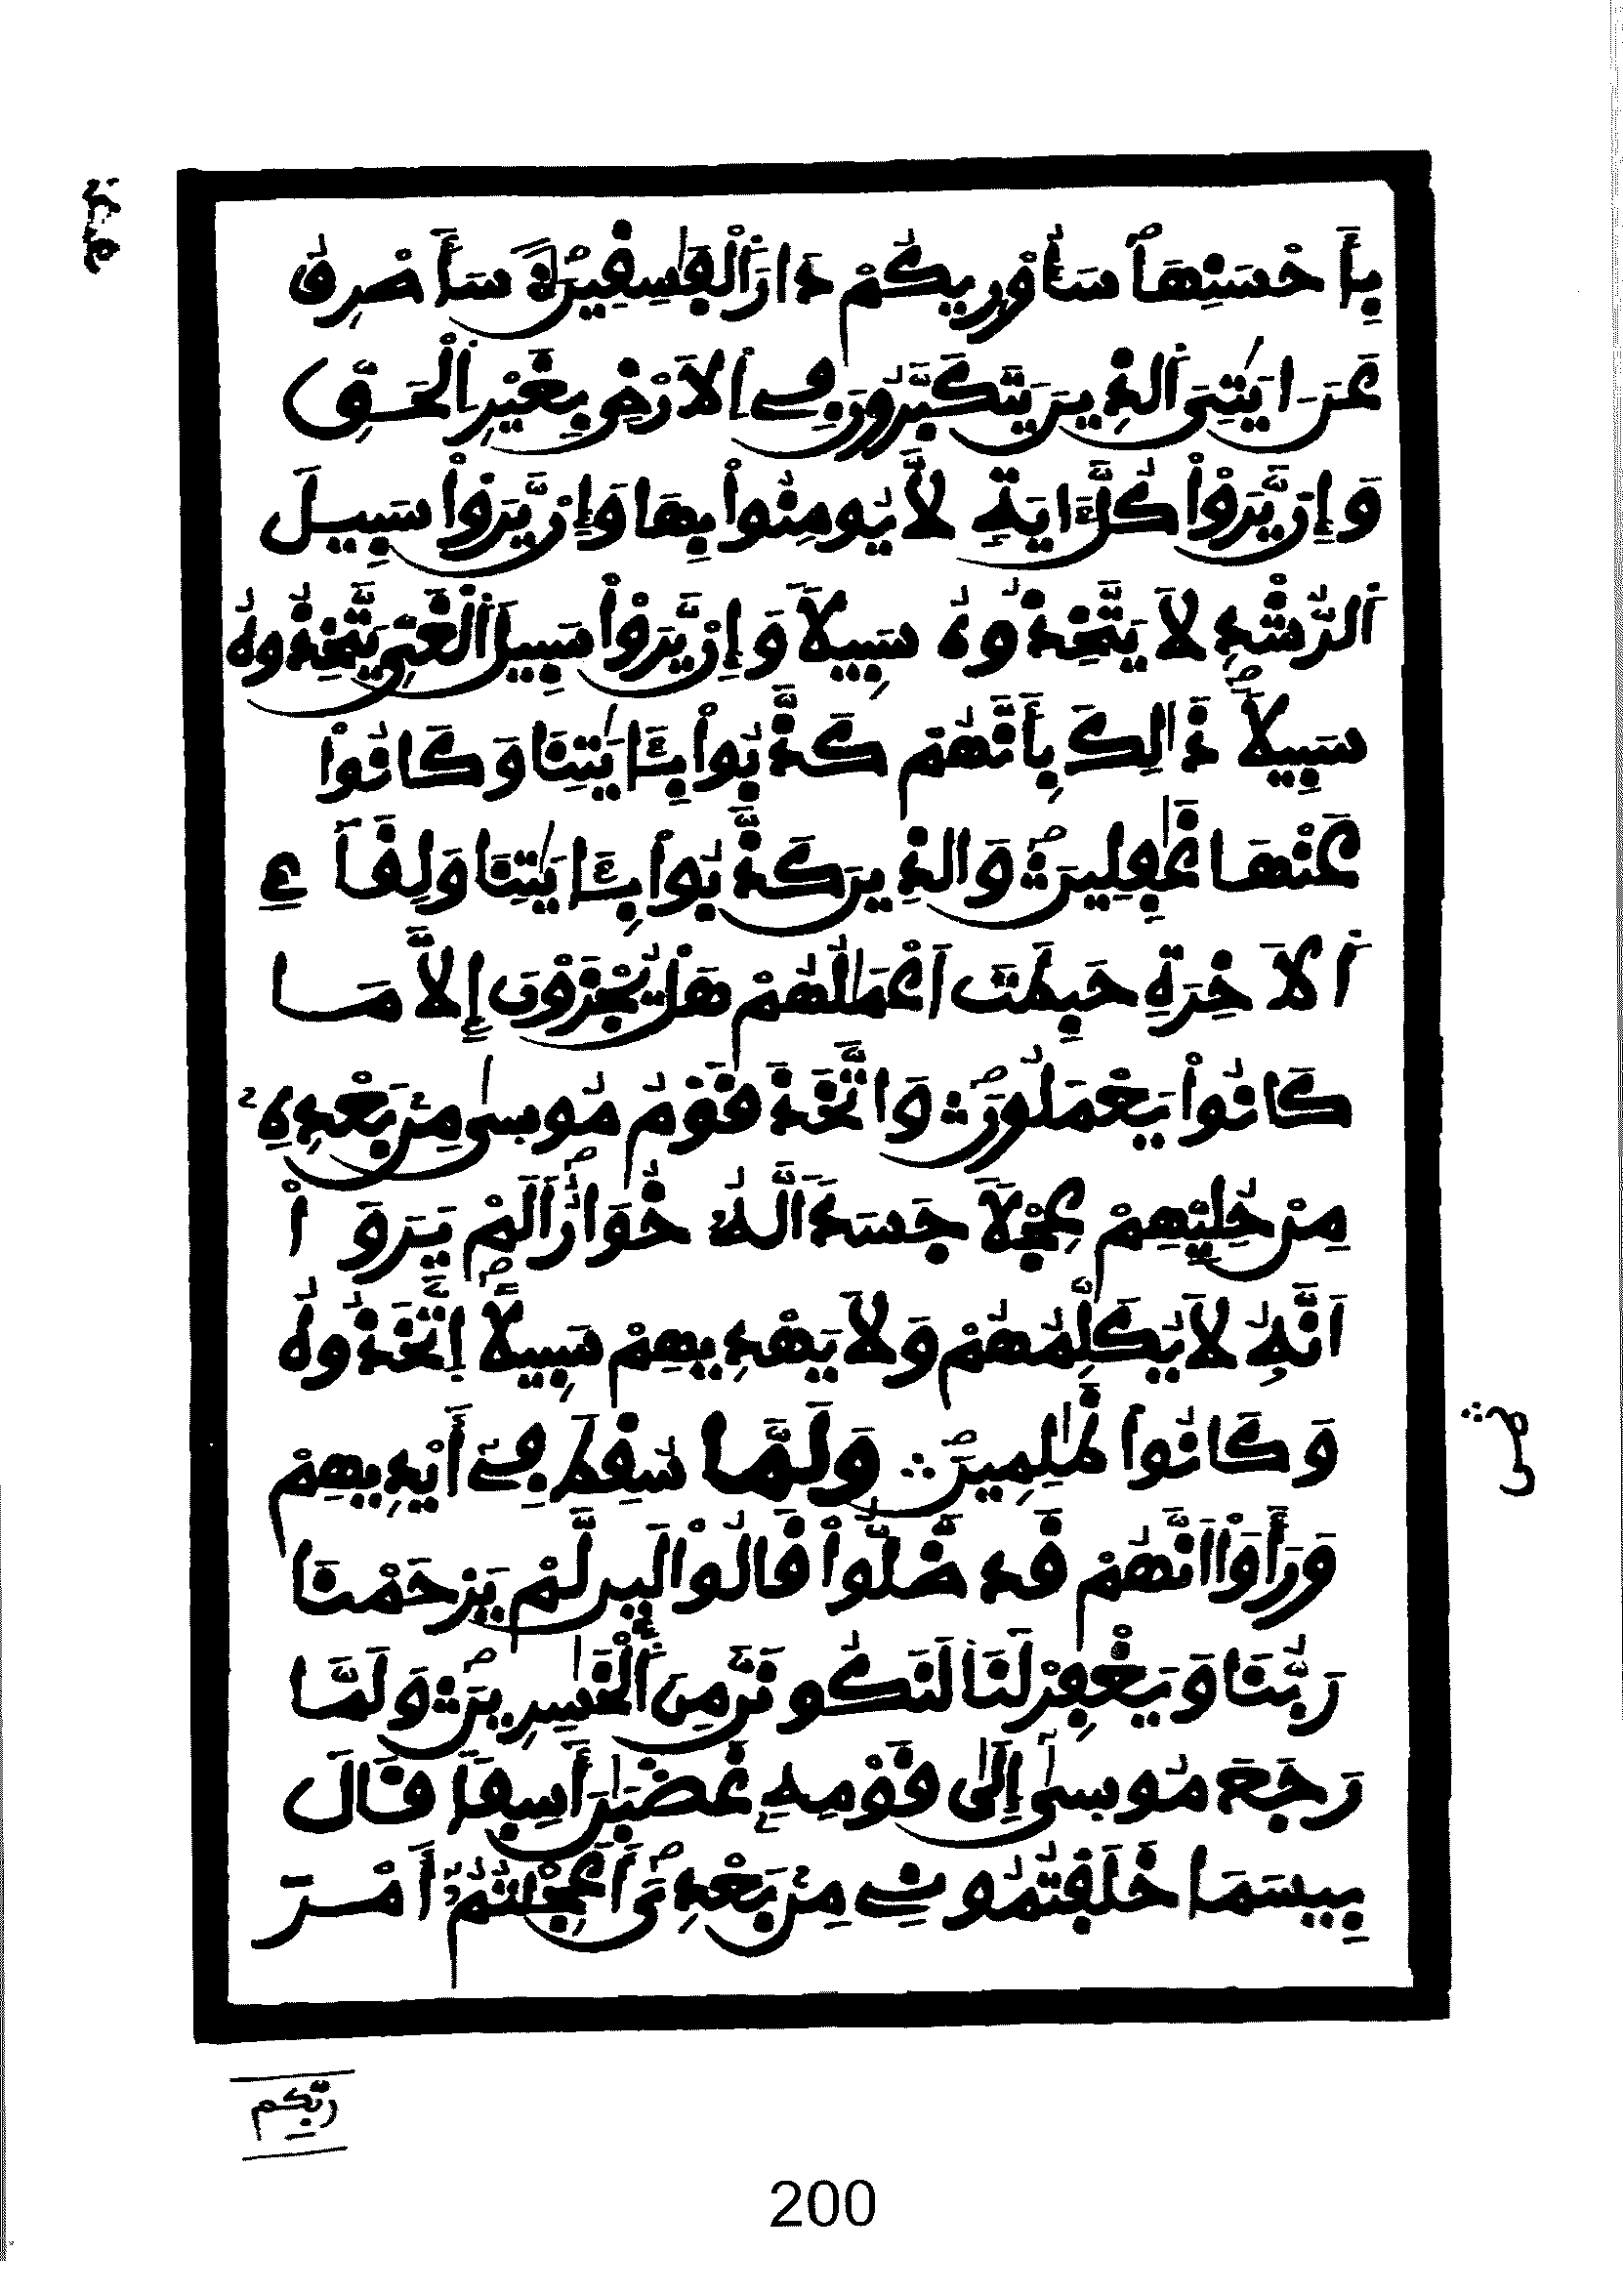 بِأَحْسَنِهَا سَأُوْرِيكُمْ دَارَ اَ۬لْفَٰسِقِينَ سَأَصْرِفُ
عَنَ اٰيَٰتِيَ اَ۬لذِينَ يَتَكَبَّرُونَ فِے اِ۬لَارْضِ بِغَيْرِ اِ۬لْحَقِّ
وَإِنْ يَّرَوْاْ كُلَّ ءَايَةٍ لَّا يُومِنُواْ بِهَا وَإِنْ يَّرَوْاْ سَبِيلَ
اَ۬لرُّشْدِ لَا يَتَّخِذُوهُ سَبِيلاً وَإِنْ يَّرَوْاْ سَبِيلَ اَ۬لْغَيِّ يَتَّخِذُوهُ
سَبِيلاً ذَٰلِكَ بِأَنَّهُمْ كَذَّبُواْ بِـَٔايَٰتِنَا وَكَانُواْ
عَنْهَا غَٰفِلِينَ وَالذِينَ كَذَّبُواْ بِـَٔايَٰتِنَا وَلِقَآءِ
اِ۬لَاخِرَةِ حَبِطَتَ اَعْمَٰلُهُمْ هَلْ يُجْزَوْنَ إِلَّا مَا
كَانُواْ يَعْمَلُونَ وَاتَّخَذَ قَوْمُ مُوسىٰ مِنْ بَعْدِهِ
مِنْ حُلِيِّهِمْ عِجْلاً جَسَداً لَّهُ خُوَارٌ اَلَمْ يَرَوَاْ
اَنَّهُ لَا يُكَلِّمُهُمْ وَلَا يَهْدِيهِمْ سَبِيلاً اِتَّخَذُوهُ
وَكَانُواْ ظَٰلِمِينَ وَلَمَّا سُقِطَ فِے أَيْدِيهِمْ
وَرَأَوَاْ اَنَّهُمْ قَد ضَّلُّواْ قَالُواْ لَئِن لَّمْ يَرْحَمْنَا
رَبُّنَا وَيَغْفِرْ لَنَا لَنَكُونَنَّ مِنَ اَ۬لْخَٰسِرِينَ وَلَمَّا
رَجَعَ مُوسىٰٓ إِلَىٰ قَوْمِهِ غَضْبَٰنَ أَسِفاً قَالَ
بِيسَمَا خَلَفْتُمُونِے مِنْ بَعْدِيَ أَعَجِلْتُمُۥٓ أَمْرَ
رَبِّكُمْ
200